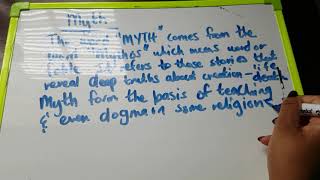 Myth
The word "MYTH" comes from the
word " " which means word or
refers to those stories that
reveal deep truths about creation - death
Myth form the basis of teaching
& even dogma in some religion